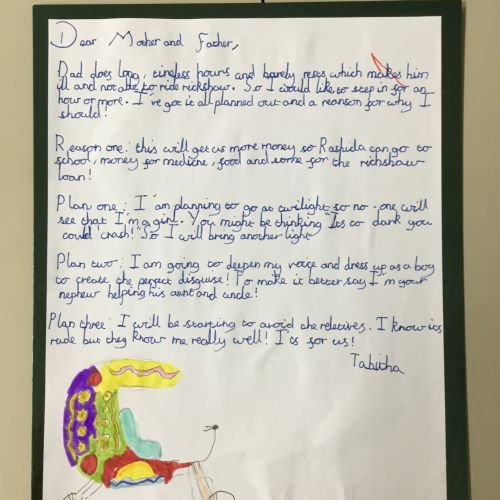 Dear Mother and Father,
Dad does long, tireless hours and barely rests which makes him
ill and not able to ride rickshaw. So I would like to step in for an
hour or more. I've got it all planned out and a reanson for why I
should!
Reason one: this will get us more money so Rashida can go to
school, money for medicine, food and some for the richshaw
loan!
Plan one: I'am planning to go at twilight so no-one will
see that I'm a girl. You might be thinking "Its to dark you
could crash!" So I will bring another light
Plan two: I am going to deepen my voice and dress up as a boy
to create the perfect disguise! To make it better say I'm your
nephew helping his aunt and uncle!
Plan three: I will be starting to avoid the reletives. I know its
rude but they know me really well! It's for us!
Tabitha